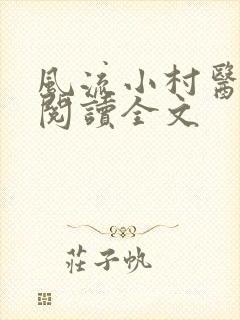 風流小村醫
閱讀全文
莊子帆